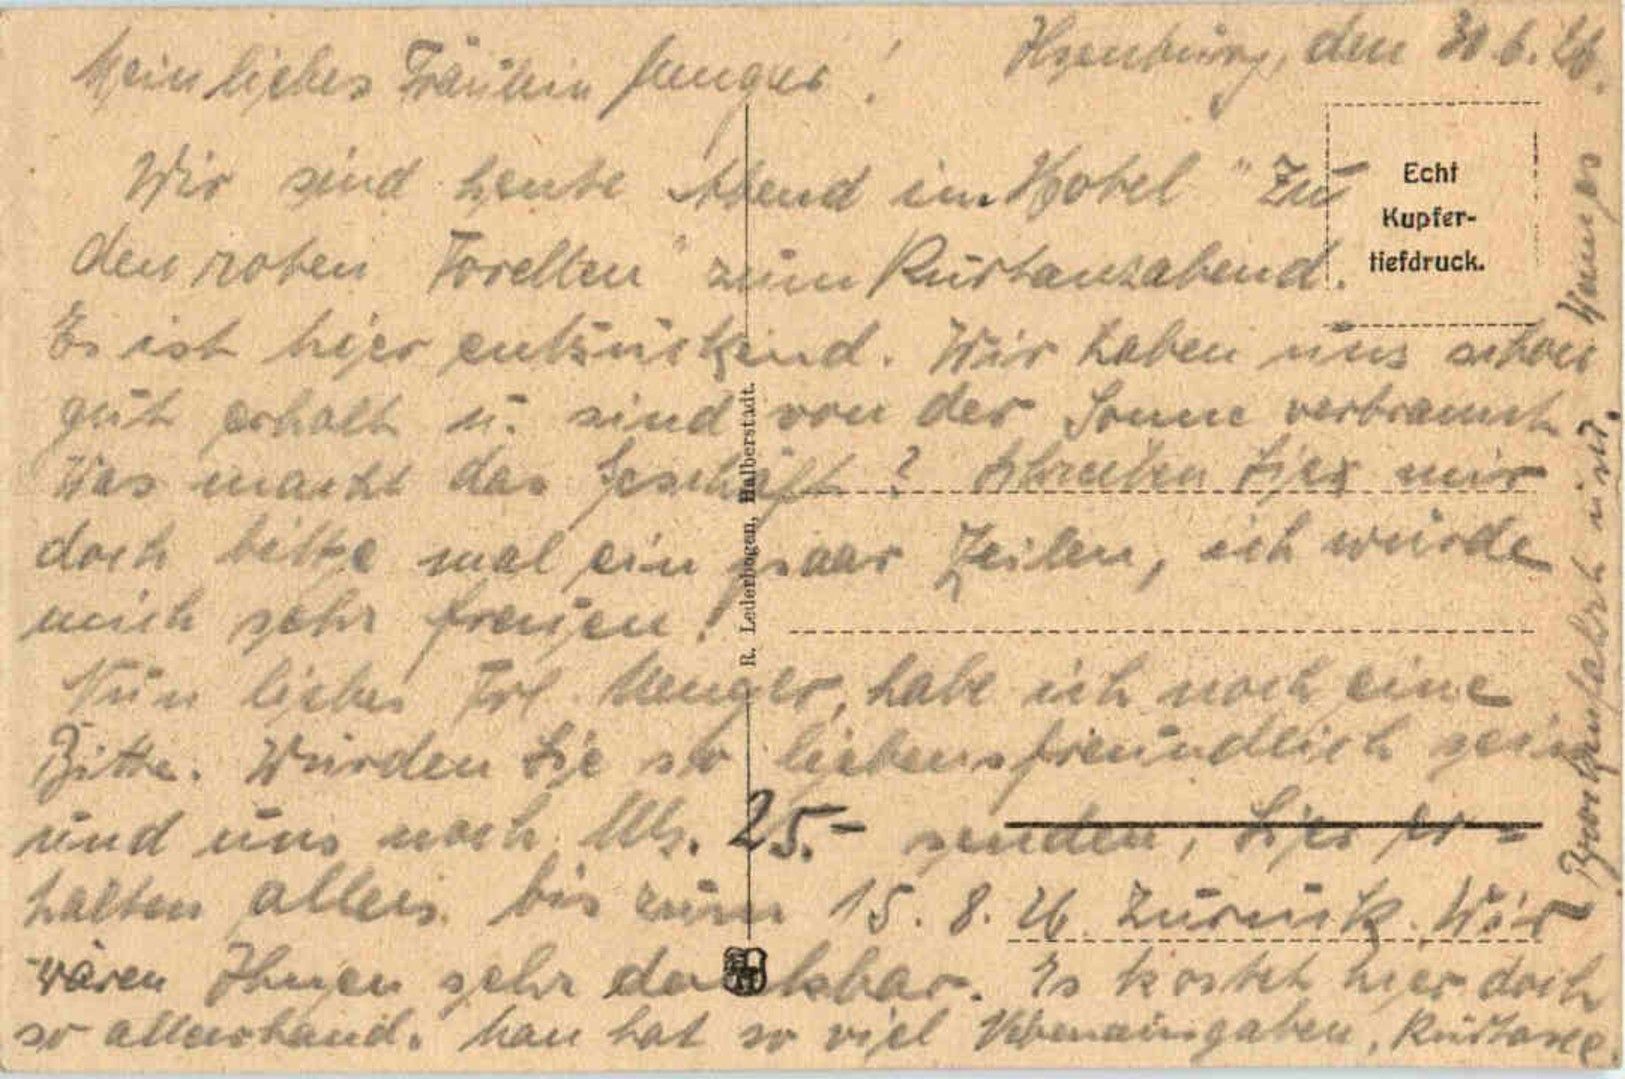 Ilsenburg, den 30.6.26.
Mein liebes Fräulein Menger!
Wir sind heute Abend im Hotel "Zu
den roten Forellen" zum Kurtanzabend.
Es ist hier entzückend. Wir haben uns schon
gut erholt u. sind von der Sonne verbrannt.
Was macht das Geschäft? Schreiben Sie mir
doch bitte mal ein paar Zeilen, ich würde
mich sehr freuen!
Nun liebes Frl. Menger, habe ich noch eine
Bitte. Würden Sie so liebensfreundlich sein
und uns noch Mk. 25.- senden, Sie er-
halten alles bis zum 15.8.26 zurück. Wir
wären Ihnen sehr dankbar. Es kostet hier doch
so allerhand. Man hat so viel Nebenausgaben, Kurtaxe,
Brockenfahrt usw.
Echt
Kupfer-
tiefdruck.
R. Lederbogen, Halberstadt.